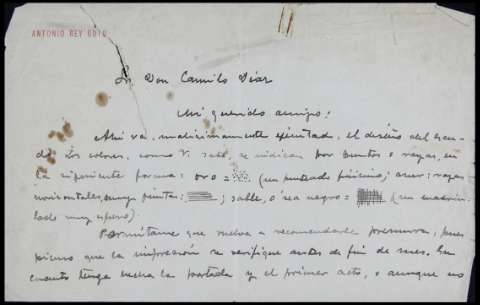 ANTONIO REY SOTO
Sr. Don Camilo Díaz
Mi querido amigo:
Ahí va, malísimamente ejecutado, el diseño del escu-
do. Los colores, como V. sabe, se indican por puntos o rayas, en
la siguiente forma: oro = (un punteado finísimo); azur: rayas
horizontales, muy juntas: ; sable, o sea negro = (un cuadricu-
lado muy espeso).
Permítame que vuelva a recomendarle premura, pues
pienso que la impresión se verifique antes de fin de mes. En
cuanto tenga hecha la portada y el primer acto, o aunque no